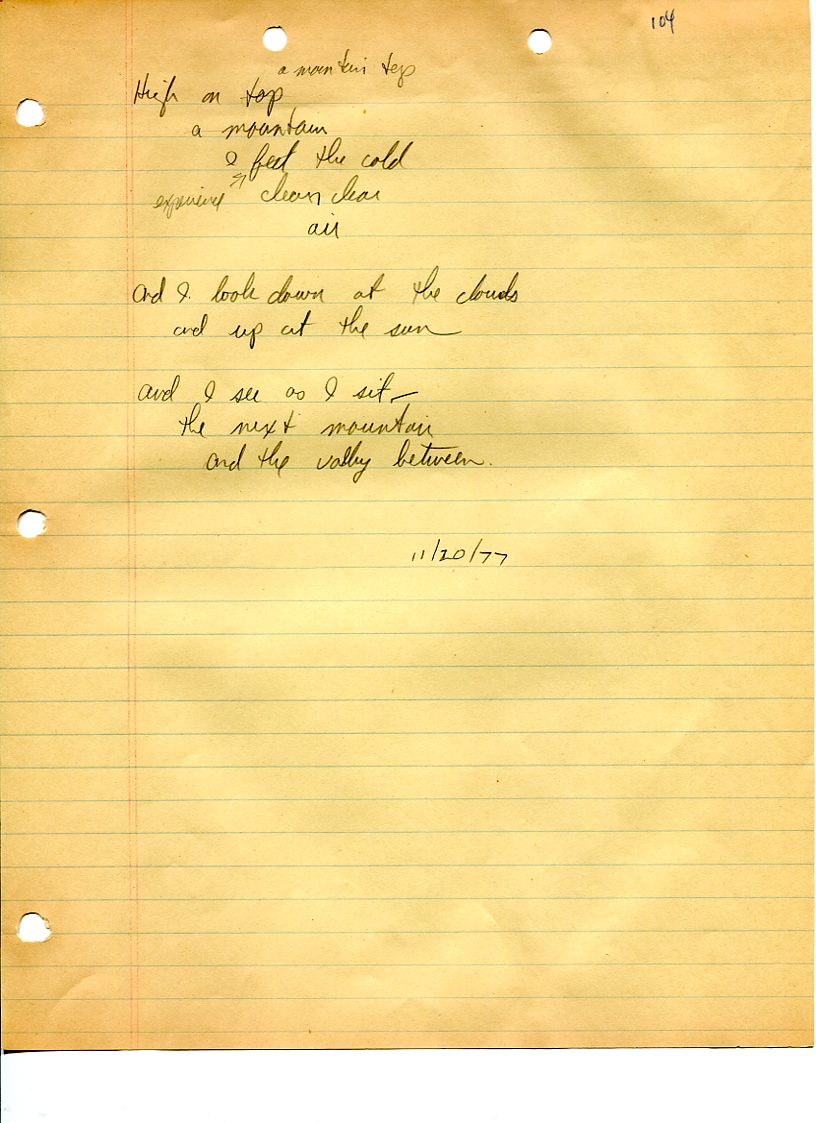 104
a mountain top
High on top
a mountain
I feel the cold
experience clean clear
air
and I look down at the clouds
and up at the sun
and I see as I sit
the next mountain
and the valley between.
11/20/77